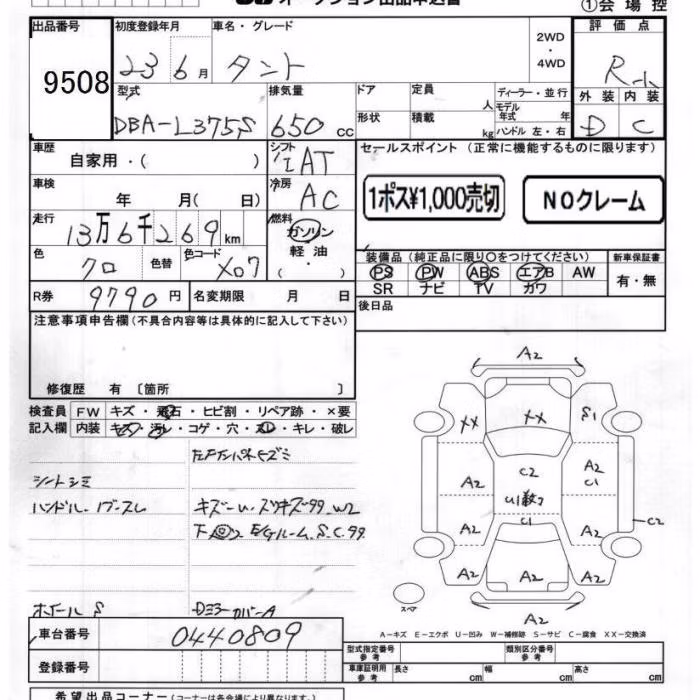 ①会場控
出品番号
9508
初度登録年月
23 6月
車名・グレード
タント
2WD
・
4WD
評価点
R-
外装 内装
D C
型式
DBA-L375S
排気量
650 CC
ドア
形状
定員
人
積載
kg
ディーラー・並行
モデル
年式 年
ハンドル 左・右
車歴
自家用・( )
シフト
AT
セールスポイント (正常に機能するものに限ります)
1ポス¥1,000売切
NOクレーム
車検
年 月( 日)
冷房
AC
走行
13万6千269km
燃料
ガソリン
軽油
・
( )
色
クロ
色替
色コード
X07
装備品(純正品に限り○をつけてください)
PS PW ABS エアB AW
SR ナビ TV カワ
新車保証書
有・無
R券
9790円
名変期限 月 日
後日品
注意事項申告欄(不具合内容等は具体的に記入して下さい)
修復歴 有 〔箇所 〕
検査員
記入欄
FW キズ・飛石・ヒビ割・リペア跡・×要
内装 キズ・汚レ・コゲ・穴・スレ・キレ・破レ
シートシミ
ハンドル・ノブースレ
キズ
E/Gルーム S.C.99
ホイール S
A2
XX
XX
S1
C2
A2
C1
A2
U1
C1
A2
A2
C2
A2
A2
A2
A2
スペア
A-キズ E-エクボ U-凹み W-補修跡 S-サビ C-腐食 XX-交換済
車台番号
0440809
登録番号
型式指定番号
参考
類別区分番号
参考
車庫証明用
参考
長さ cm
幅 cm
高さ cm
希望出品コーナー(コーナーは各会場により異なります)